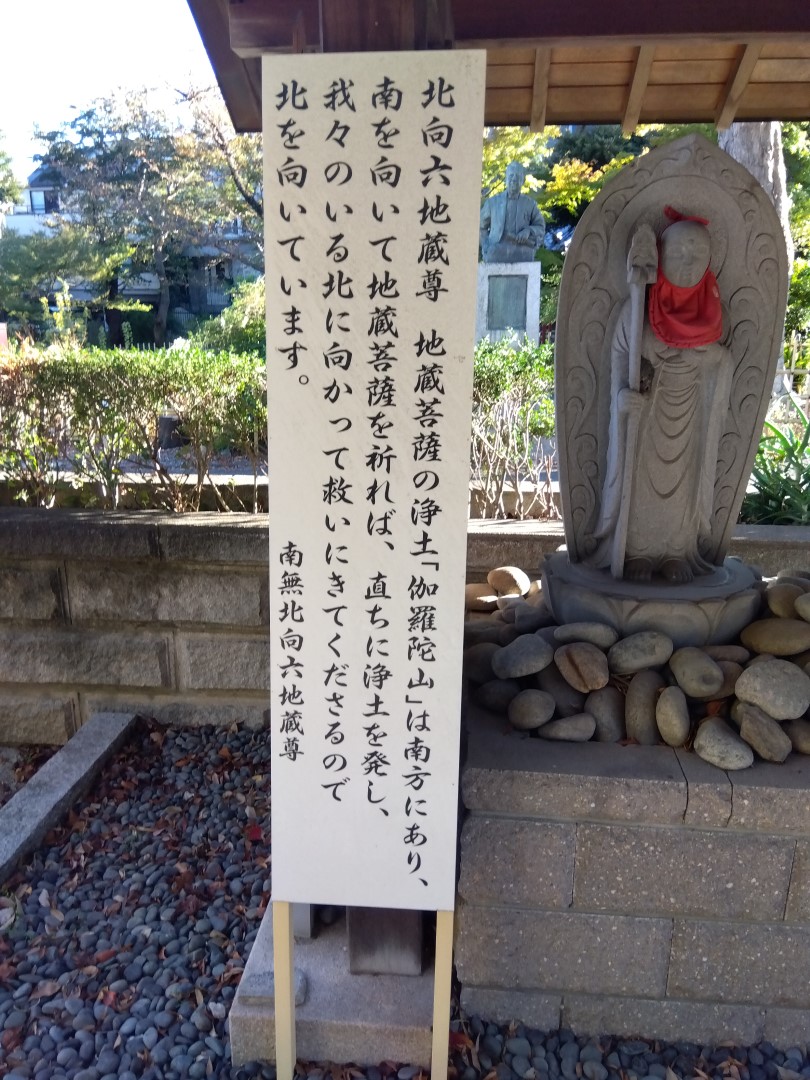 北向六地蔵尊　地蔵菩薩の浄土「伽羅陀山」は南方にあり、
南を向いて地蔵菩薩を祈れば、直ちに浄土を発し、
我々のいる北に向かって救いにきてくださるので
北を向いています。
南無北向六地蔵尊